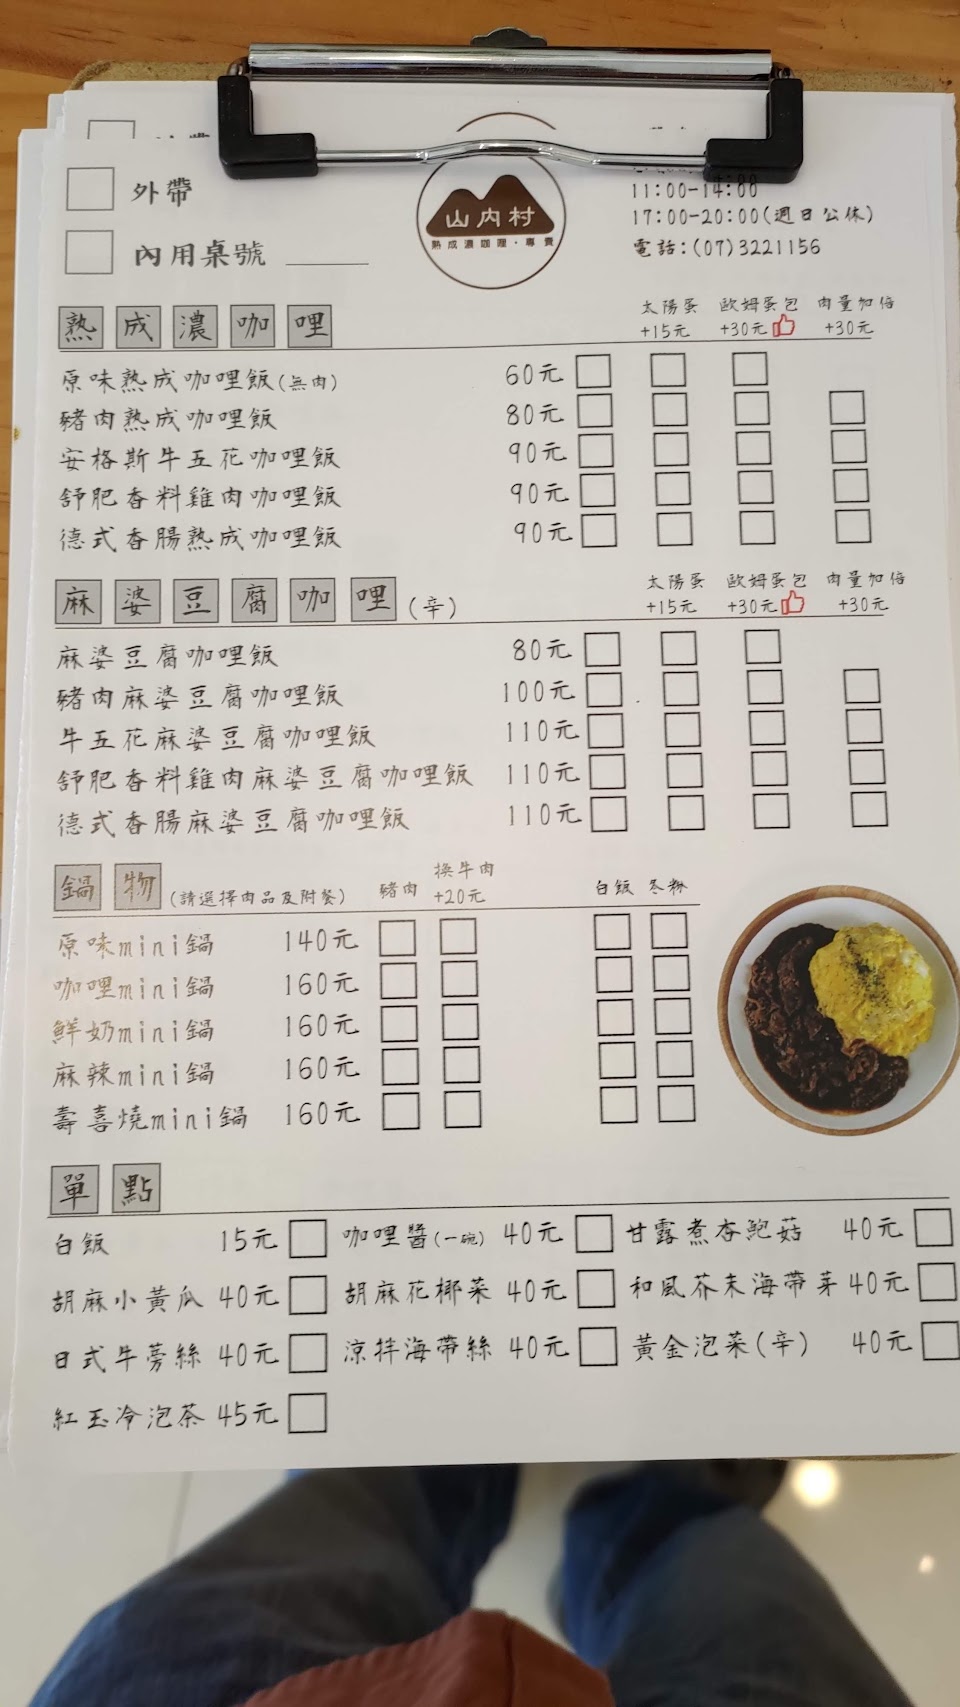 外帶
內用桌號
山內村
熟成濃咖哩·專賣
11:00-14:00
17:00-20:00(週日公休)
電話:(07)3221156
熟成濃咖哩 太陽蛋+15元 歐姆蛋包+30元 肉量加倍+30元
原味熟成咖哩飯(無肉) 60元
豬肉熟成咖哩飯 80元
安格斯牛五花咖哩飯 90元
舒肥香料雞肉咖哩飯 90元
德式香腸熟成咖哩飯 90元
麻婆豆腐咖哩(辛) 太陽蛋+15元 歐姆蛋包+30元 肉量加倍+30元
麻婆豆腐咖哩飯 80元
豬肉麻婆豆腐咖哩飯 100元
牛五花麻婆豆腐咖哩飯 110元
舒肥香料雞肉麻婆豆腐咖哩飯 110元
德式香腸麻婆豆腐咖哩飯 110元
鍋物(請選擇肉品及附餐) 豬肉 換牛肉+20元 白飯 冬粉
原味mini鍋 140元
咖哩mini鍋 160元
鮮奶mini鍋 160元
麻辣mini鍋 160元
壽喜燒mini鍋 160元
單點
白飯 15元 咖哩醬(一碗) 40元 甘露煮杏鮑菇 40元
胡麻小黃瓜 40元 胡麻花椰菜 40元 和風芥末海帶芽 40元
日式牛蒡絲 40元 涼拌海帶絲 40元 黃金泡菜(辛) 40元
紅玉冷泡茶 45元